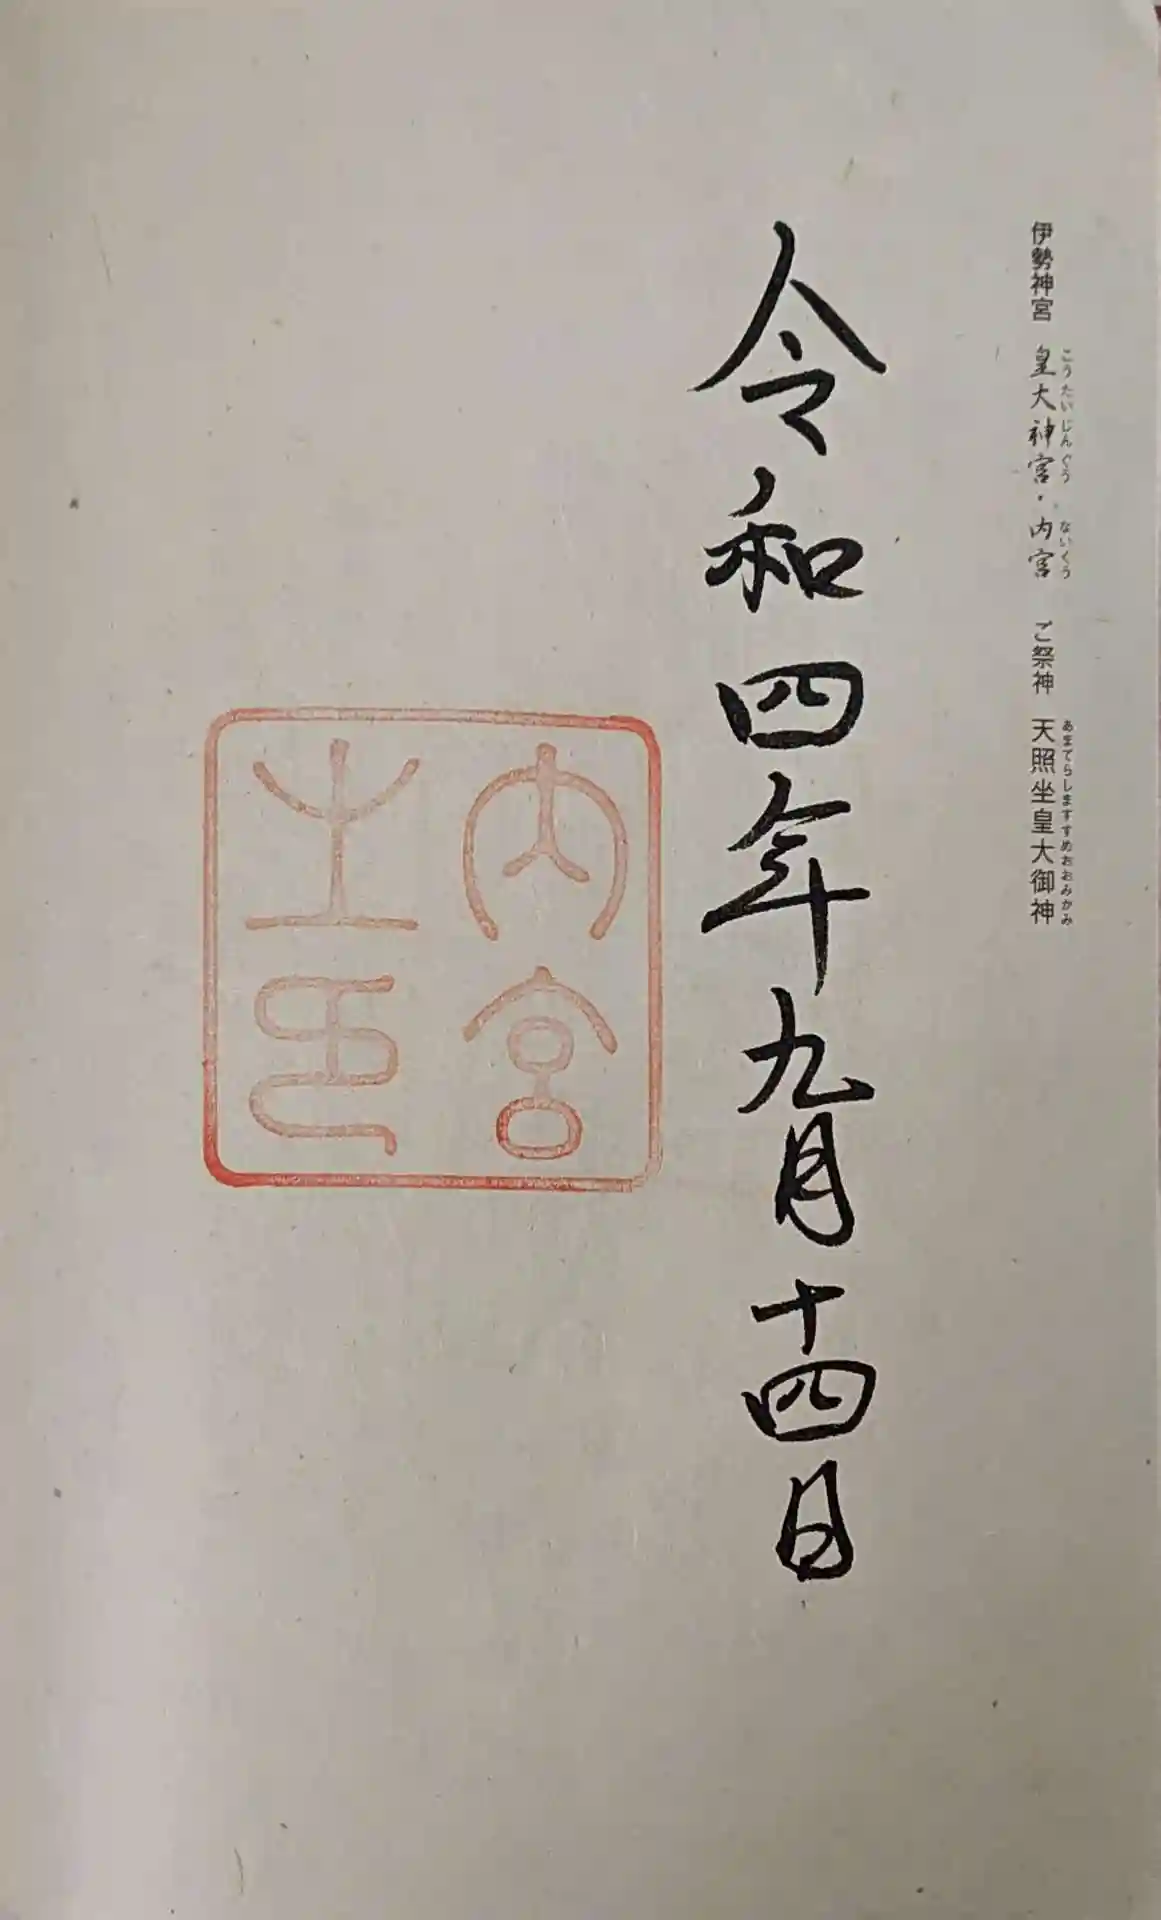 伊勢神宮 皇大神宮・内宮 ご祭神 天照坐皇大御神
こうたいじんぐう ないくう あまてらしますすめおおみかみ
令和四年九月十四日
内宮
之印